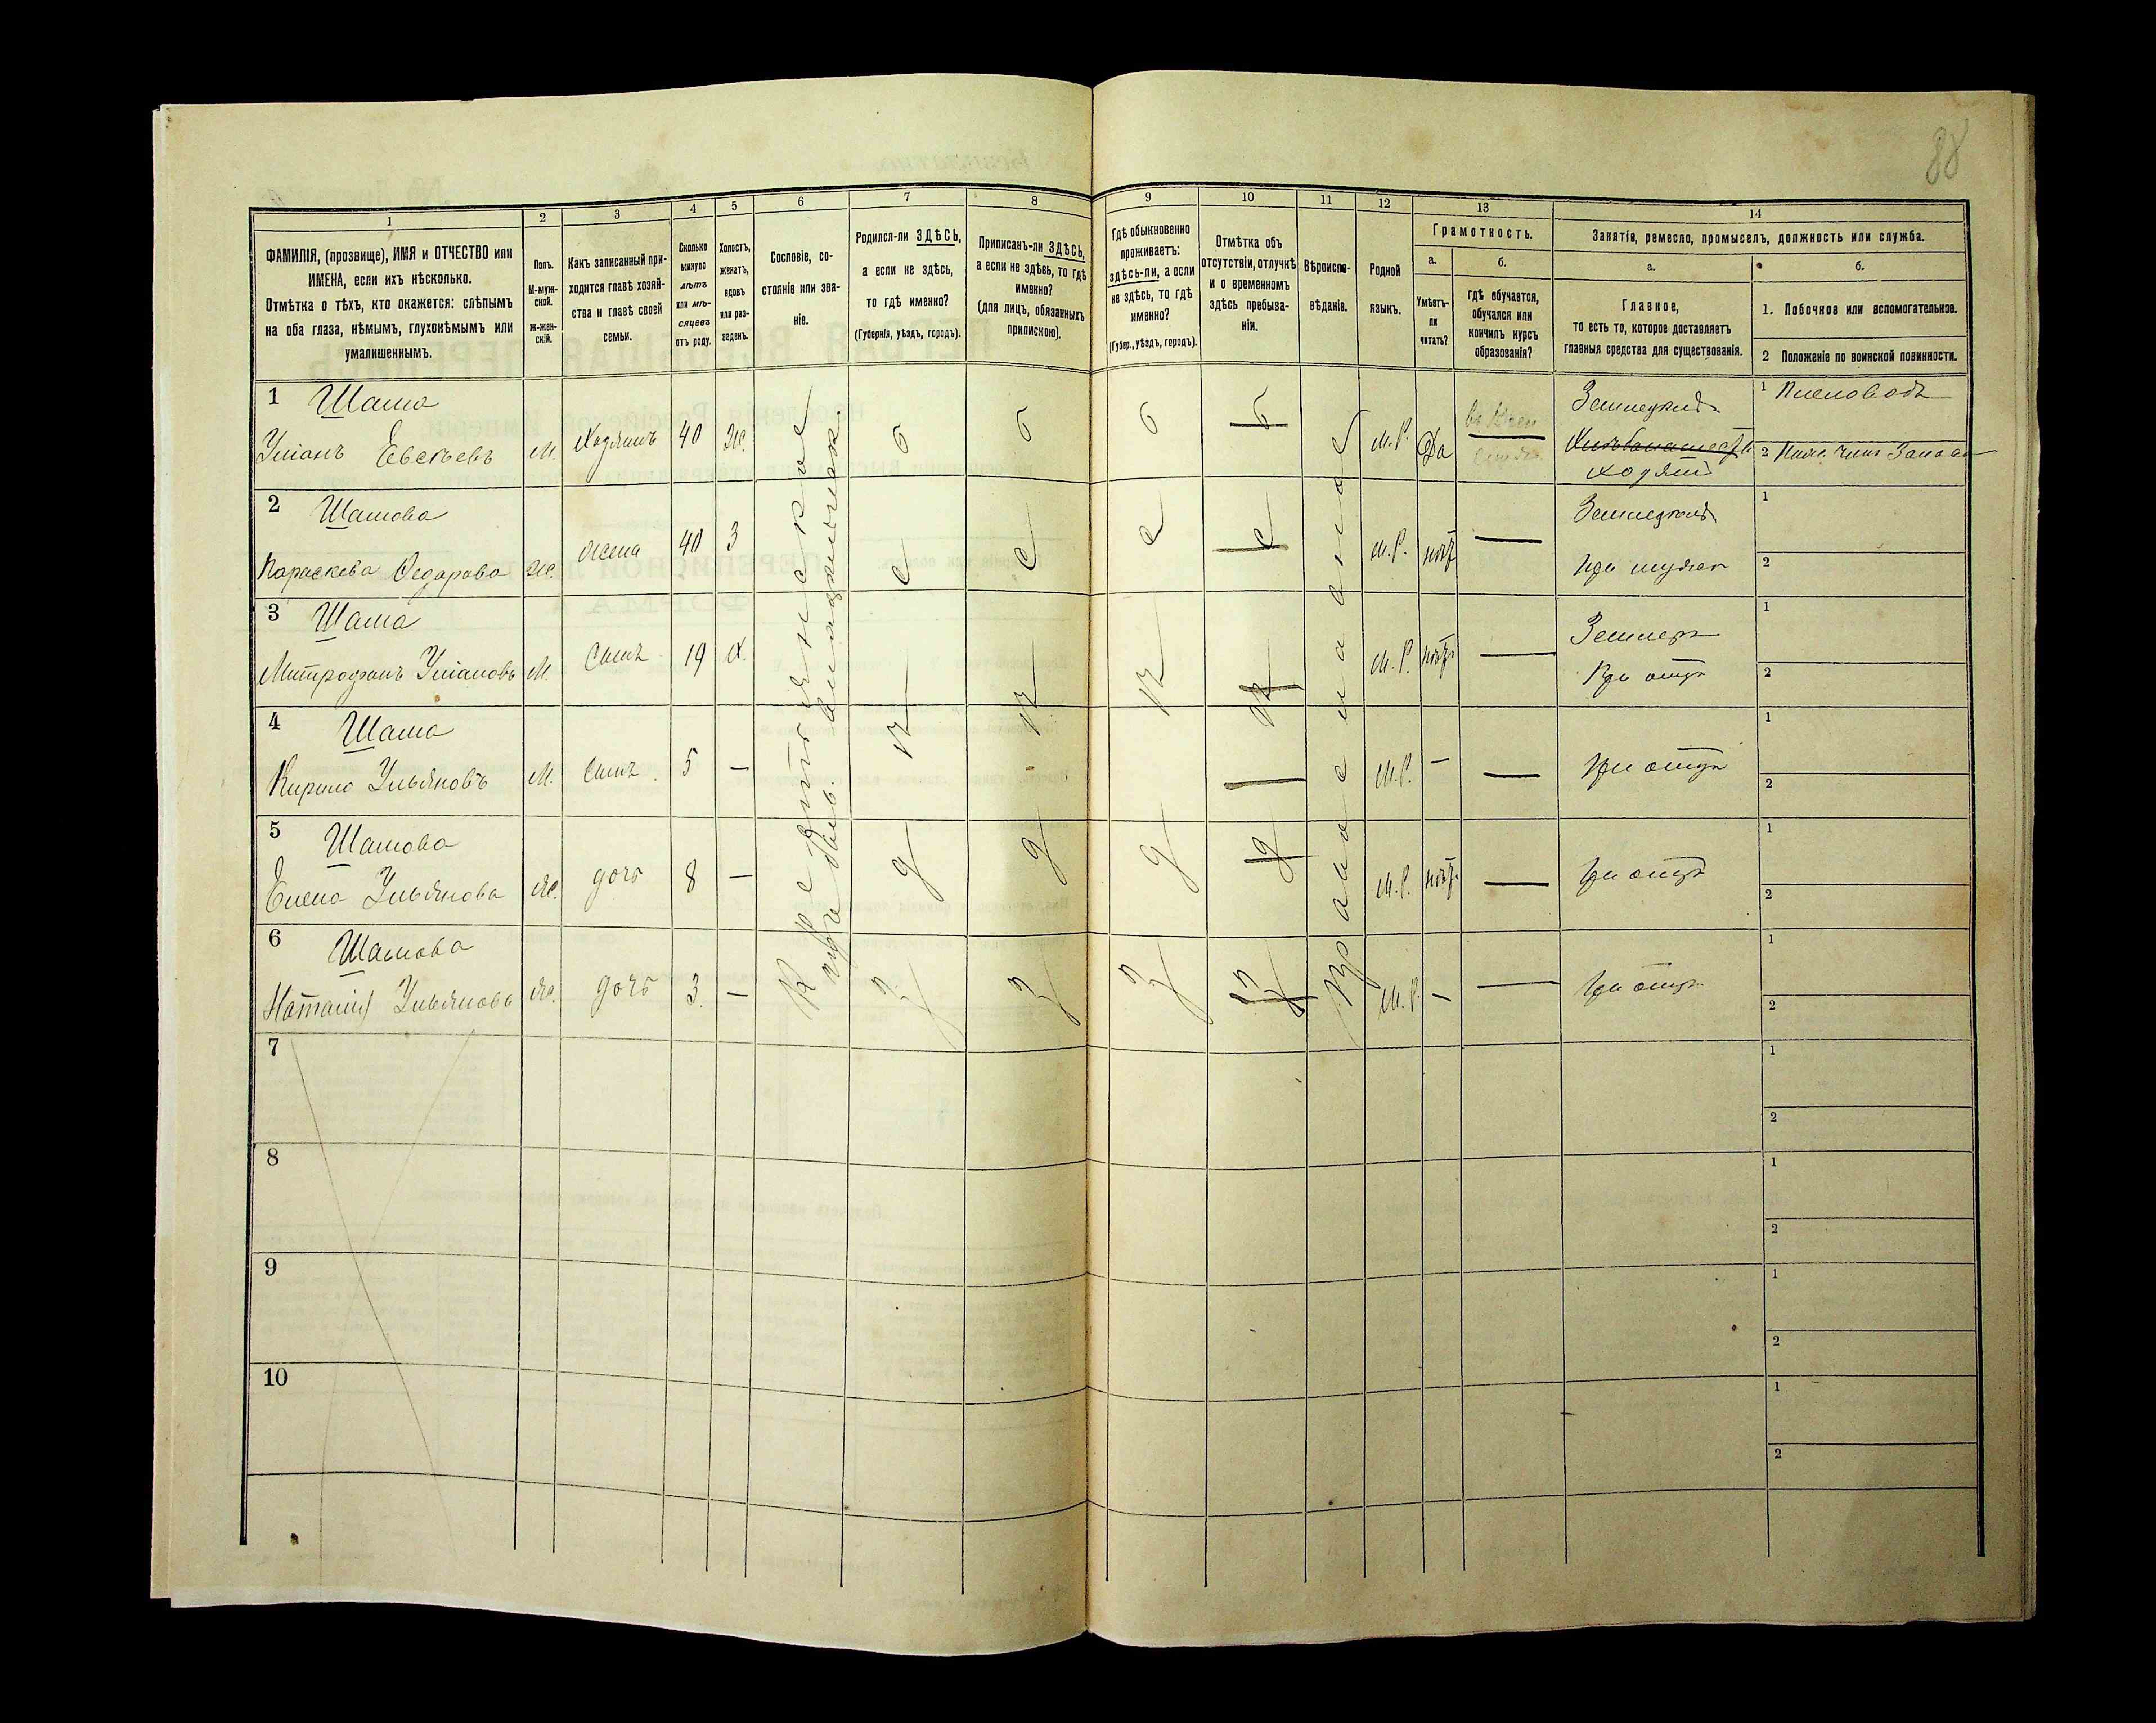 88
1 2 3 4 5 6 7 8 9 10 11 12 13 14
ФАМИЛІЯ, (прозвище), ИМЯ и ОТЧЕСТВО или
ИМЕНА, если ихъ нѣсколько.
Отмѣтка о тѣхъ, кто окажется: слѣпымъ
на оба глаза, нѣмымъ, глухонѣмымъ или
умалишеннымъ.
Полъ.
М-муж-
ской.
ж-жен-
скій.
Какъ записанный при-
ходится главѣ хозяй-
ства и главѣ своей
семьи.
Сколько
минуло
лѣтъ
или мѣ-
сяцевъ
отъ роду.
Холостъ,
женатъ,
вдовъ
или раз-
веденъ.
Сословіе, со-
стояніе или зва-
ніе.
Родился-ли ЗДѢСЬ,
а если не здѣсь,
то гдѣ именно?
(Губернія, уѣздъ, городъ).
Приписанъ-ли ЗДѢСЬ,
а если не здѣсь, то гдѣ
именно?
(для лицъ, обязанныхъ
припискою).
Гдѣ обыкновенно
проживаетъ:
здѣсь-ли, а если
не здѣсь, то гдѣ
именно?
(Губер., уѣздъ, городъ).
Отмѣтка объ
отсутствіи, отлучкѣ
и о временномъ
здѣсь пребыва-
ніи.
Вѣроиспо-
вѣданіе.
Родной
языкъ.
Грамотность.
а.
Умѣетъ-
ли
читать?
б.
гдѣ обучается,
обучался или
кончилъ курсъ
образованія?
Занятія, ремесло, промыселъ, должность или служба.
а.
Главное,
то есть то, которое доставляетъ
главныя средства для существованія.
б.
1. Побочное или вспомогательное.
2 Положеніе по воинской повинности.
Крестьянское
Православное
здѣсь
здѣсь
здѣсь
1 Шама
Уліанъ Евсѣевъ М. Хозяинъ 40 Ж. М.Р. Да
Хозяинъ
1 Пчеловодъ
2
2 Шамова
Параскева Федорова Ж. Жена 40 З М.Р. нѣтъ —
1
2
3 Шама
Митрофанъ Уліановъ М. Сынъ 19 Х. М.Р. нѣтъ —
При отцѣ
1
2
4 Шама
Кирило Ульяновъ М. Сынъ 5 — М.Р. — —
При отцѣ
1
2
5 Шамова
Елена Ульянова Ж. дочь 8 — М.Р. нѣтъ —
При отцѣ
1
2
6 Шамова
Наталія Ульянова Ж. дочь 3 — М.Р. — —
При отцѣ
1
2
7
1
2
8
1
2
9
1
2
10
1
2